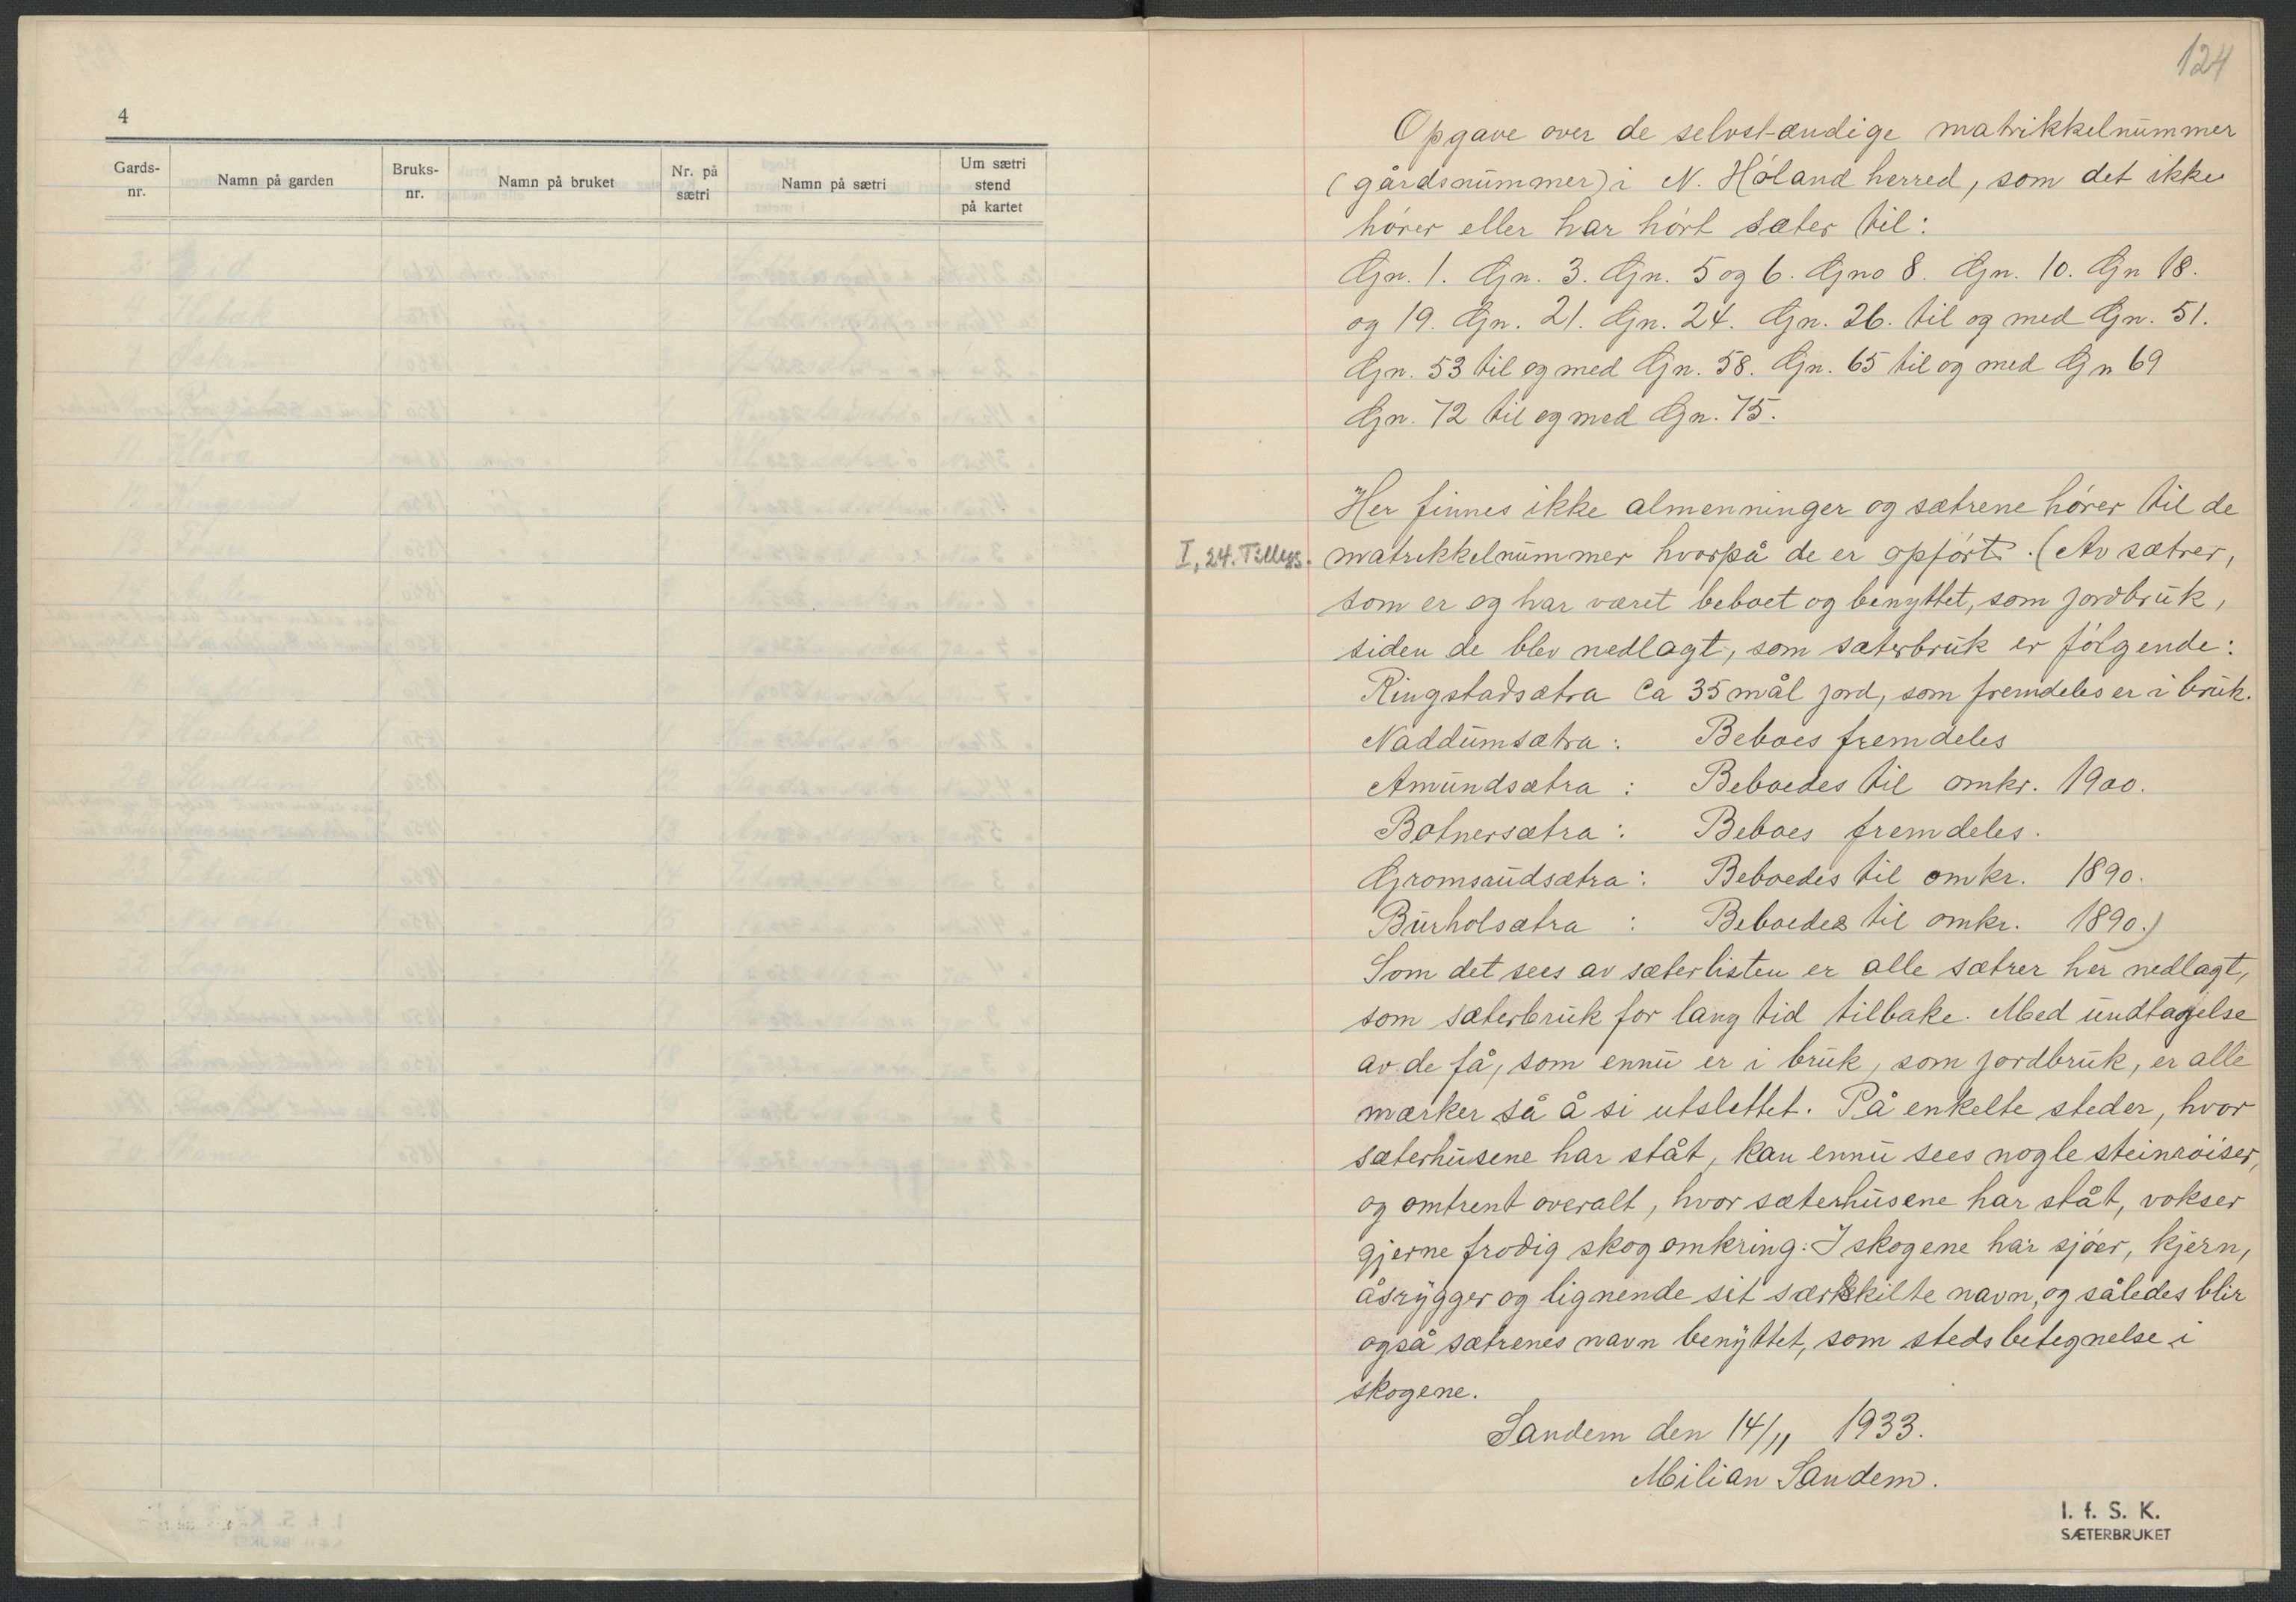 4
Gards-nr.
Namn på garden
Bruks-nr.
Namn på bruket
Nr. på sætri
Namn på sætri
Um sætri stend på kartet
124
Opgave over de selvstændige matrikkelnummer
(gårdsnummer) i N. Høland herred, som det ikke
hører eller har hørt sæter til:
Gn. 1. Gn. 3. Gn. 5 og 6. Gno 8. Gn. 10. Gn 18.
og 19. Gn. 21. Gn. 24. Gn. 26. til og med Gn. 51.
Gn. 53 til og med Gn. 58. Gn. 65 til og med Gn 69
Gn. 72 til og med Gn. 75.
Her finnes ikke almenninger og sætrene hører til de
I, 24. Tillegg. matrikkelnummer hvorpå de er opført. (Av sætrer,
som er og har været beboet og benyttet, som jordbruk,
siden de blev nedlagt, som sæterbruk er følgende:
Ringstadsætra Ca 35 mål jord, som fremdeles er i bruk.
Naddumsætra: Beboes fremdeles
Amundsætra: Beboedes til omkr. 1900.
Botnersætra: Beboes fremdeles.
Gromsaudsætra: Beboedes til omkr. 1890.
Burholsætra: Beboedes til omkr. 1890.)
Som det sees av sæterlisten er alle sætrer her nedlagt,
som sæterbruk for lang tid tilbake. Med undtagelse
av de få, som ennu er i bruk, som jordbruk, er alle
mærker så å si utslettet. På enkelte steder, hvor
sæterhusene har ståt, kan ennu sees nogle steinrøiser,
og omtrent overalt, hvor sæterhusene har ståt, vokser
gjerne frodig skog omkring: I skogene har sjøer, kjern,
åsrygger og lignende sit særskilte navn, og således blir
også sætrenes navn benyttet, som stedsbetegnelse i
skogene.
Sandem den 14/11 1933.
Milian Sandem.
I. f. S. K.
SÆTERBRUKET